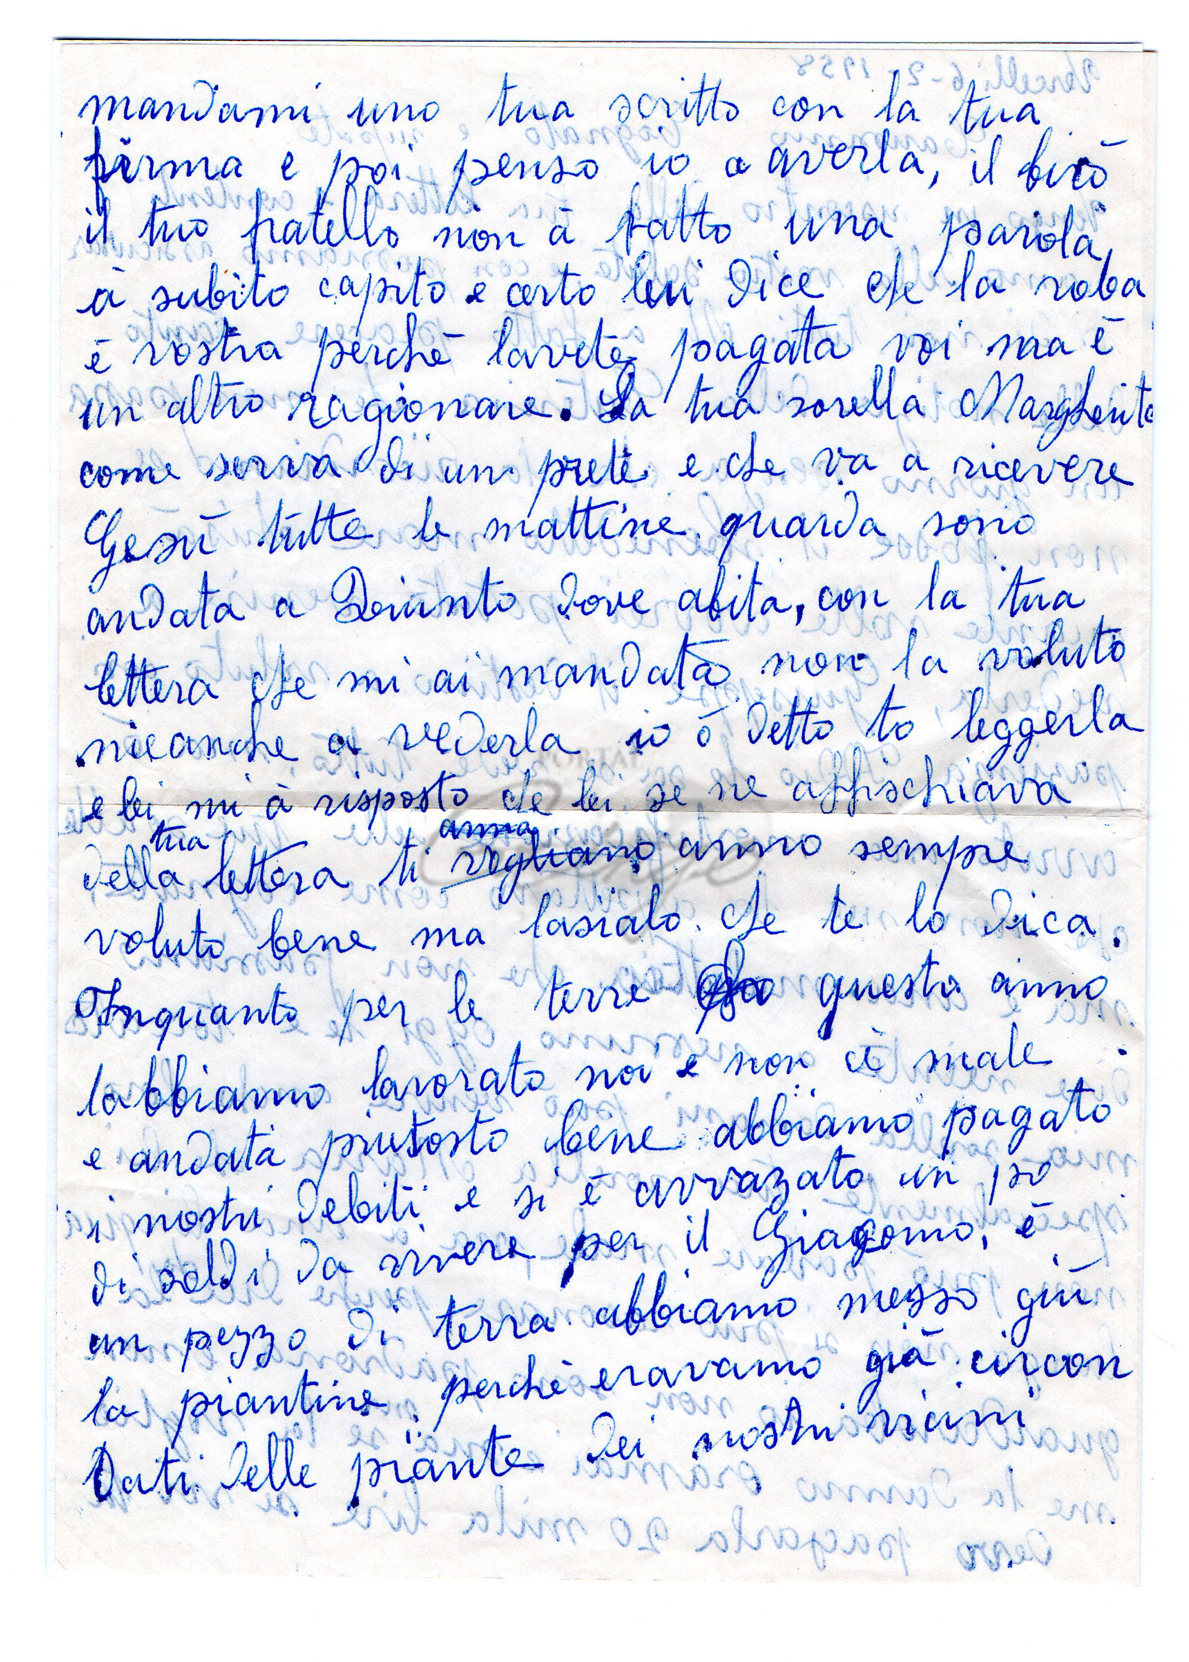 mandami uno tua scritto con la tua
firma e poi penso io a averla, il
il tuo fratello non à fatto una parola,
à subito capito e certo lui dice che la roba
é vostra perché lavete pagata voi ma é
un altro ragionare. La tua sorella Margherita
come serva di un prete e che va a ricevere
Gesù tutte le mattine guarda sono
andata a Quinto dove abita, con la tua
lettera che mi ai mandata non la voluto
nieanche a vederla io ó detto to leggerla
e lei mi à risposto che lei se ne affischiava
della tua lettera ti vogliano anno anno sempre
voluto bene ma lasialo che te lo dica.
Inquanto per le terre questo anno
labbiamo lavorato noi e non cè male
e andata piutosto bene abbiamo pagato
i nostri debiti e si é avvazato un po
di soldi da vivere per il Giacomo, é
un pezzo di terra abbiamo messo giú
la piantine perché eravamo già circon
dati delle piante dei nostri vicini